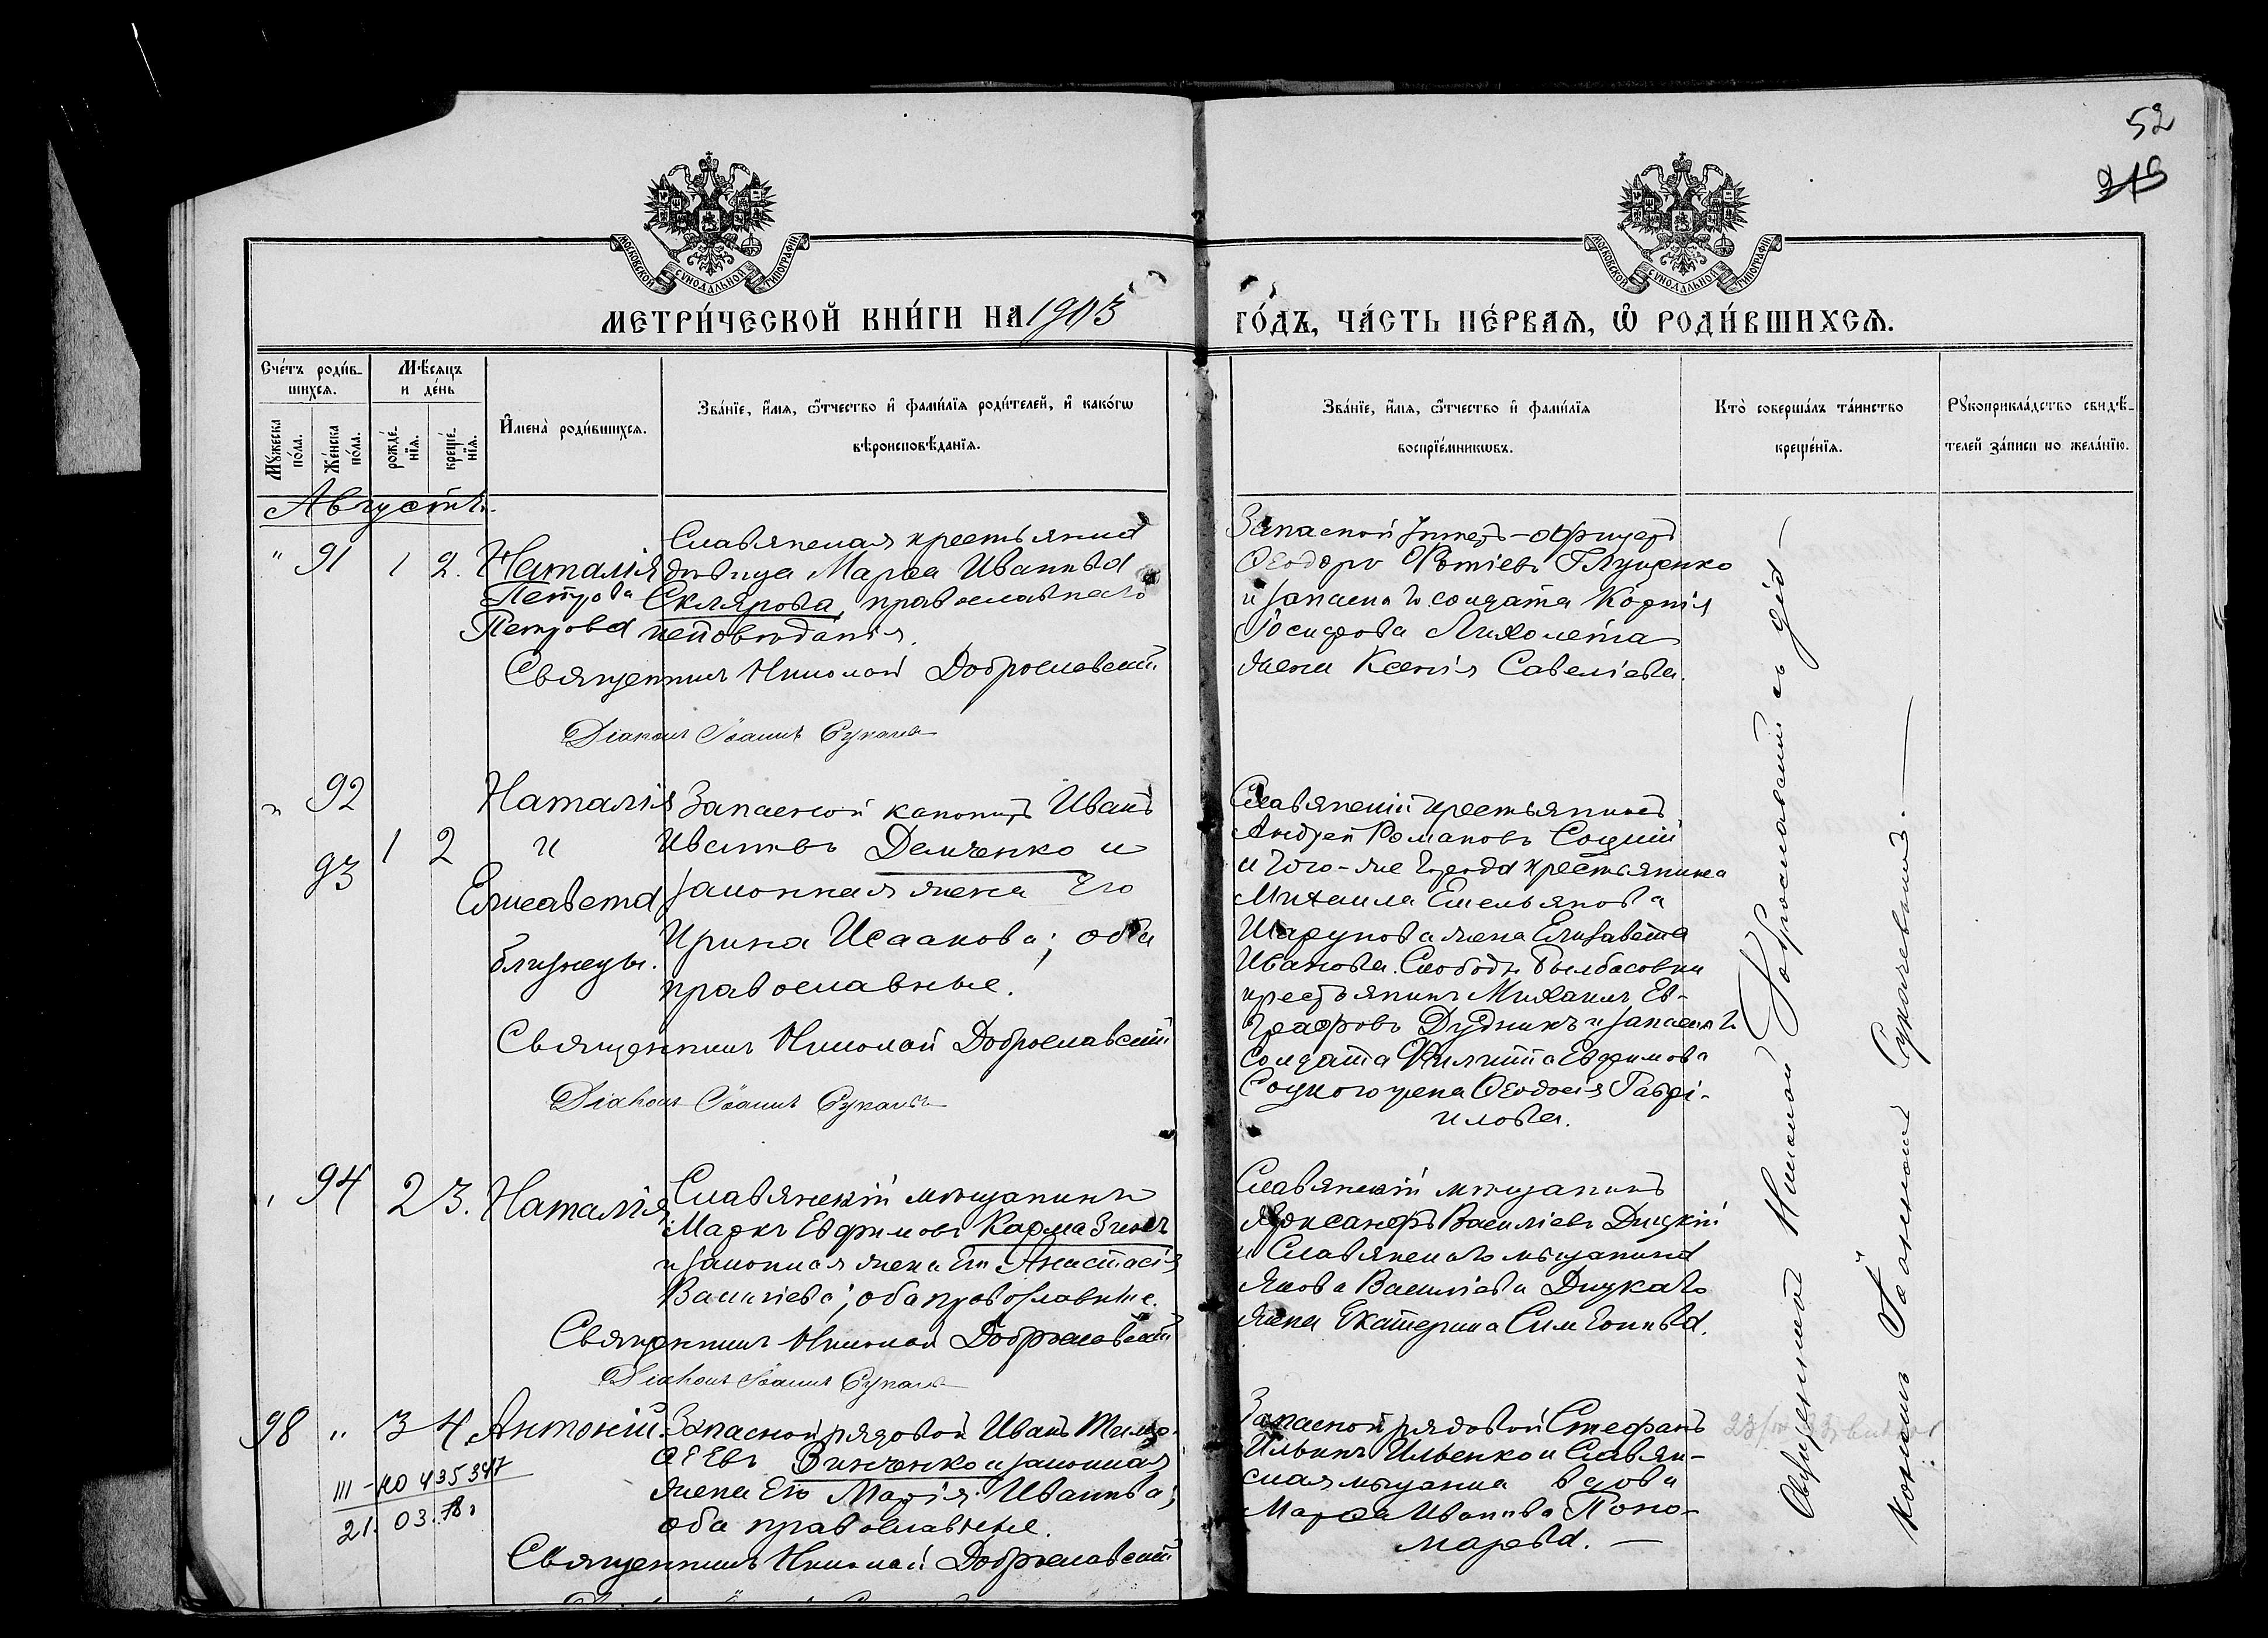 52
МОСКОВСКОЙ СѴНОДАЛЬНОЙ ТИПОГРАФІИ
МОСКОВСКОЙ СѴНОДАЛЬНОЙ ТИПОГРАФІИ
МЕТРИ́ЧЕСКОЙ КНИ́ГИ НА 1903
ГО́ДЪ, ЧА́СТЬ ПЕ́РВАѦ, Ѽ РОДИ́ВШИХСѦ.
Сче́тъ роди́в-
шихсѧ.
Мѣ́сѧцъ
и де́нь
Мꙋ́жеска
по́ла.
Же́нска
по́ла.
рожде́-
нїѧ.
креще́-
нїѧ.
И҆мена̀ роди́вшихсѧ.
Зва́нїе, и҆́мѧ, ѻ҆́тчество и҆ фамилі́ѧ роди́телей, и҆ како́гѡ
вѣроисповѣ́данїѧ.
Зва́нїе, и҆́мѧ, ѻ҆́тчество и҆ фами́лїѧ
воспрїе́мникѡвъ.
Кто̀ соверша́лъ та́инство
креще́нїѧ.
Рꙋкоприкла́дство свидѣ́-
телей за́писи по жела́нїю.
Августъ.
" 91 1 2. Наталія
Петрова
Петрова
Славянская крестьянка
дѣвица Марѳа Иванова
Склярова, православнаго
исповѣданія.
Священникъ Николай Доброславскій
Діаконъ Іоаннъ
Запасной Унтеръ-офицеръ
Ѳеодоръ Фотіевъ Глущенко
и запасного солдата Корнія
Іосифова Лихолета
жена Ксенія Савеліева.
" 92
93 1 2
Наталія
и
Елисавета
близнецы.
Запасной канониръ Иванъ
Ивановъ Демченко и
законная жена его
Ирина Исаакова; оба
православные.
Священникъ Николай Доброславскій
Діаконъ Іоаннъ
Славянскій крестьянинъ
Андрей Романовъ Соцкій
и того-же города крестьянина
Михаила Емельянова
Шарунова жена Елизавета
Иванова. Слободы Былбасовки
крестьянинъ Михаилъ Ев-
графовъ Дудникъ и запасного
солдата Филиппа Евфимова
Соцкого жена Ѳеодосія Гаврі-
илова.
" 94 2 3. Наталія
Славянскій мѣщанинъ
Маркъ Евфимовъ Кармазинъ
и законная жена его Анастасія
Василіева; оба православные.
Священникъ Николай Доброславскій
Діаконъ Іоаннъ
Славянскій мѣщанинъ
Александръ Василіевъ Дицкій
и Славянскаго мѣщанина
Якова Василіева Дицкаго
жена Екатерина Симеонова.
98 " 3 4. Антоній.
III - ЮО 435347
21. 03. 78
Запасной рядовой Иванъ Тимо-
ѳеевъ Зинченко и законная
жена его Марія Иванова;
оба православные.
Священникъ Николай Доброславскій
Запасной рядовой Стефанъ
Ильинъ Ильенко и Славян-
ская мѣщанка вдова
Марѳа Иванова Поно-
марева. —
Священникъ Николай Доброславскій съ
Іоанномъ